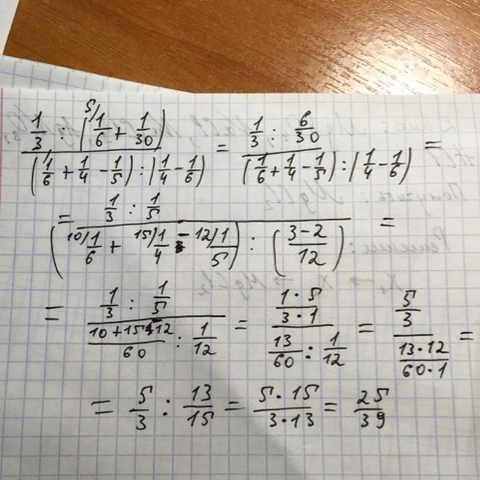 \frac{\frac{1}{3} \left(\frac{^{5/}1}{6} + \frac{1}{30}\right)}{\left(\frac{1}{6} + \frac{1}{4} - \frac{1}{5}\right) : \left(\frac{1}{4} - \frac{1}{6}\right)} = \frac{\frac{1}{3} : \frac{6}{30}}{\left(\frac{1}{6} + \frac{1}{4} - \frac{1}{5}\right) : \left(\frac{1}{4} - \frac{1}{6}\right)} =
= \frac{\frac{1}{3} : \frac{1}{5}}{\left(\frac{^{10/}1}{6} + \frac{^{15/}1}{4} - \frac{^{12/}1}{5}\right) : \left(\frac{3-2}{12}\right)} =
= \frac{\frac{1}{3} : \frac{1}{5}}{\frac{10+15-12}{60} : \frac{1}{12}} = \frac{\frac{1 \cdot 5}{3 \cdot 1}}{\frac{13}{60} : \frac{1}{12}} = \frac{\frac{5}{3}}{\frac{13 \cdot 12}{60 \cdot 1}} =
= \frac{5}{3} : \frac{13}{15} = \frac{5 \cdot 15}{3 \cdot 13} = \frac{25}{39}